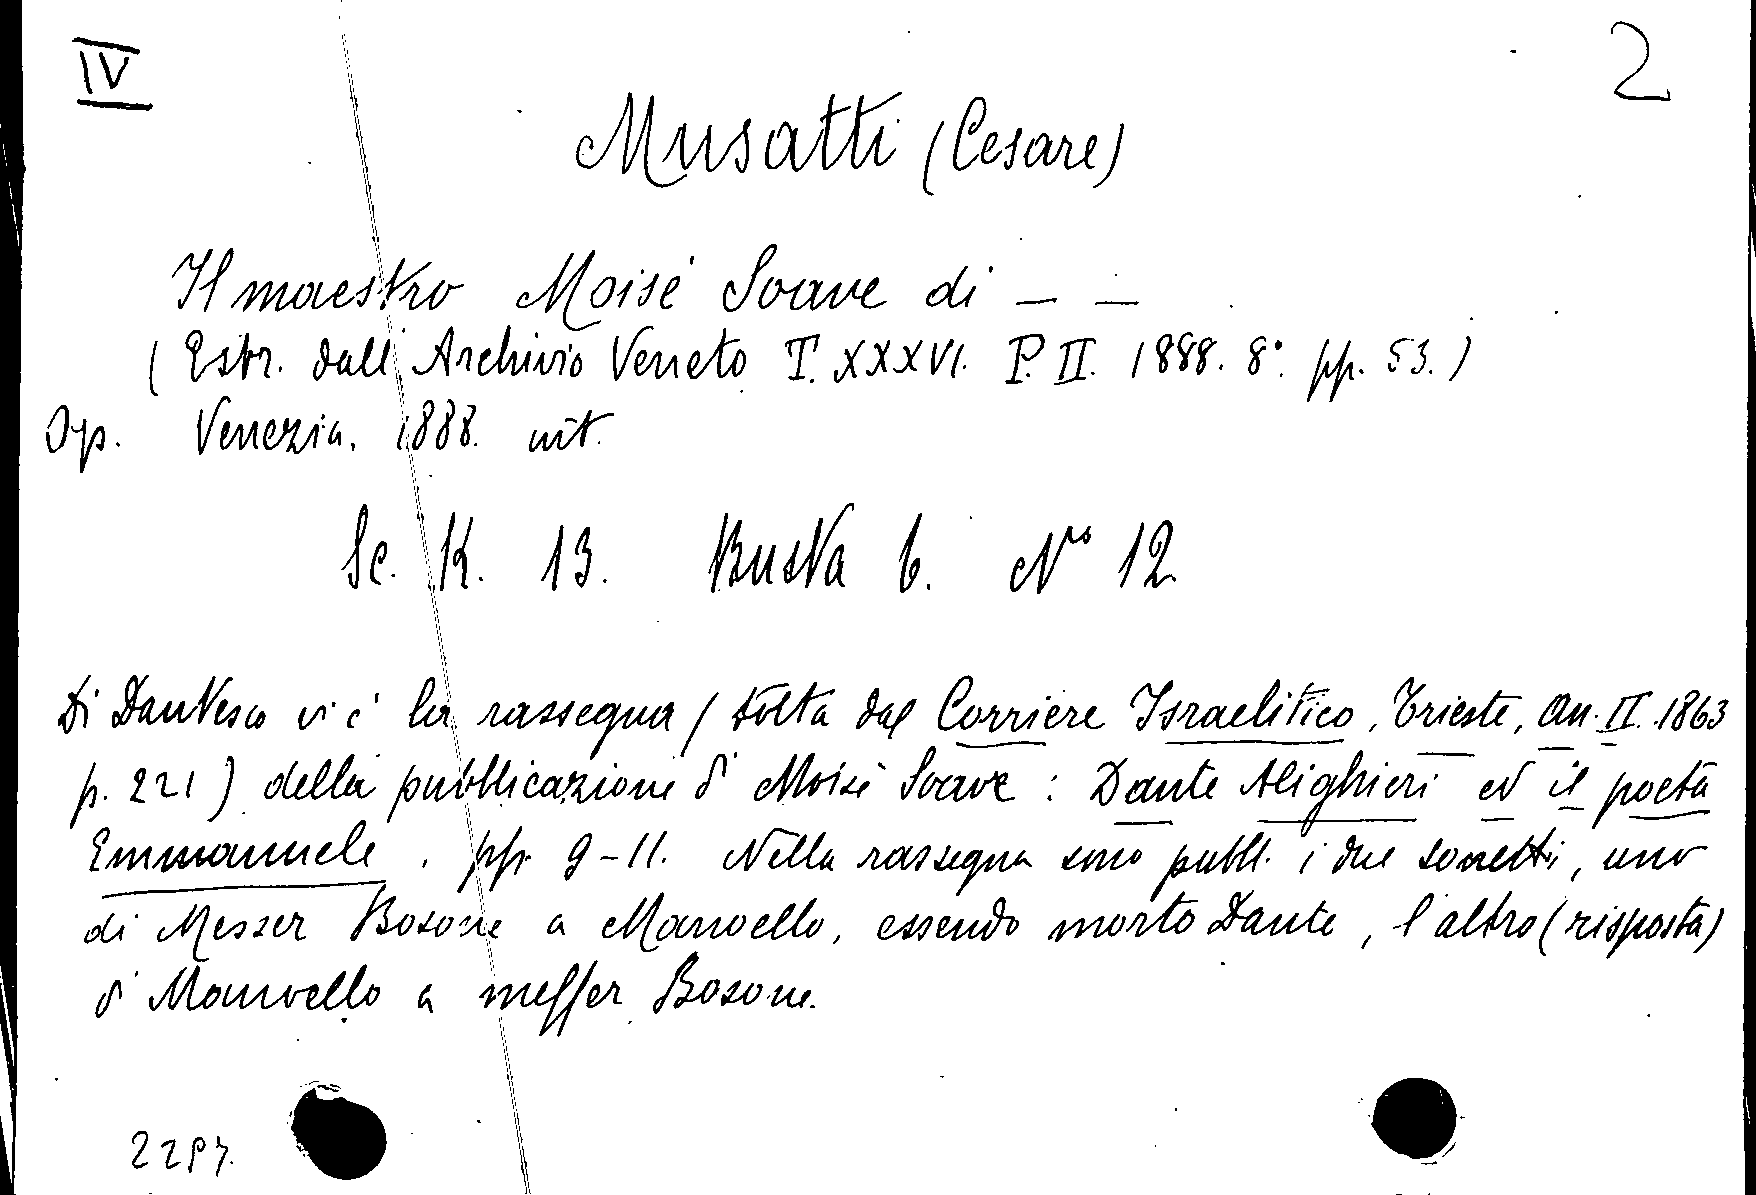 IV
2
Musatti (Cesare)
Il maestro Moisè Soave di — —
(Estr. dall'Archivio Veneto T. XXXVI. P. II. 1888. 8° pp. 53.)
Op. Venezia. 1888. vit.
Sc. K. 13. Busta 6. No 12
Di Dantesco vi è la rassegna (tolta dal Corriere Israelitico, Trieste, An. II. 1863
p. 221) della pubblicazione di Moisè Soave: Dante Alighieri ed il poeta
Emmanuele. pp. 9-11. Nella rassegna sono pubbl. i due sonetti, uno
di Messer Bosone a Manoello, essendo morto Dante, l'altro (risposta)
di Manoello a messer Bosone.